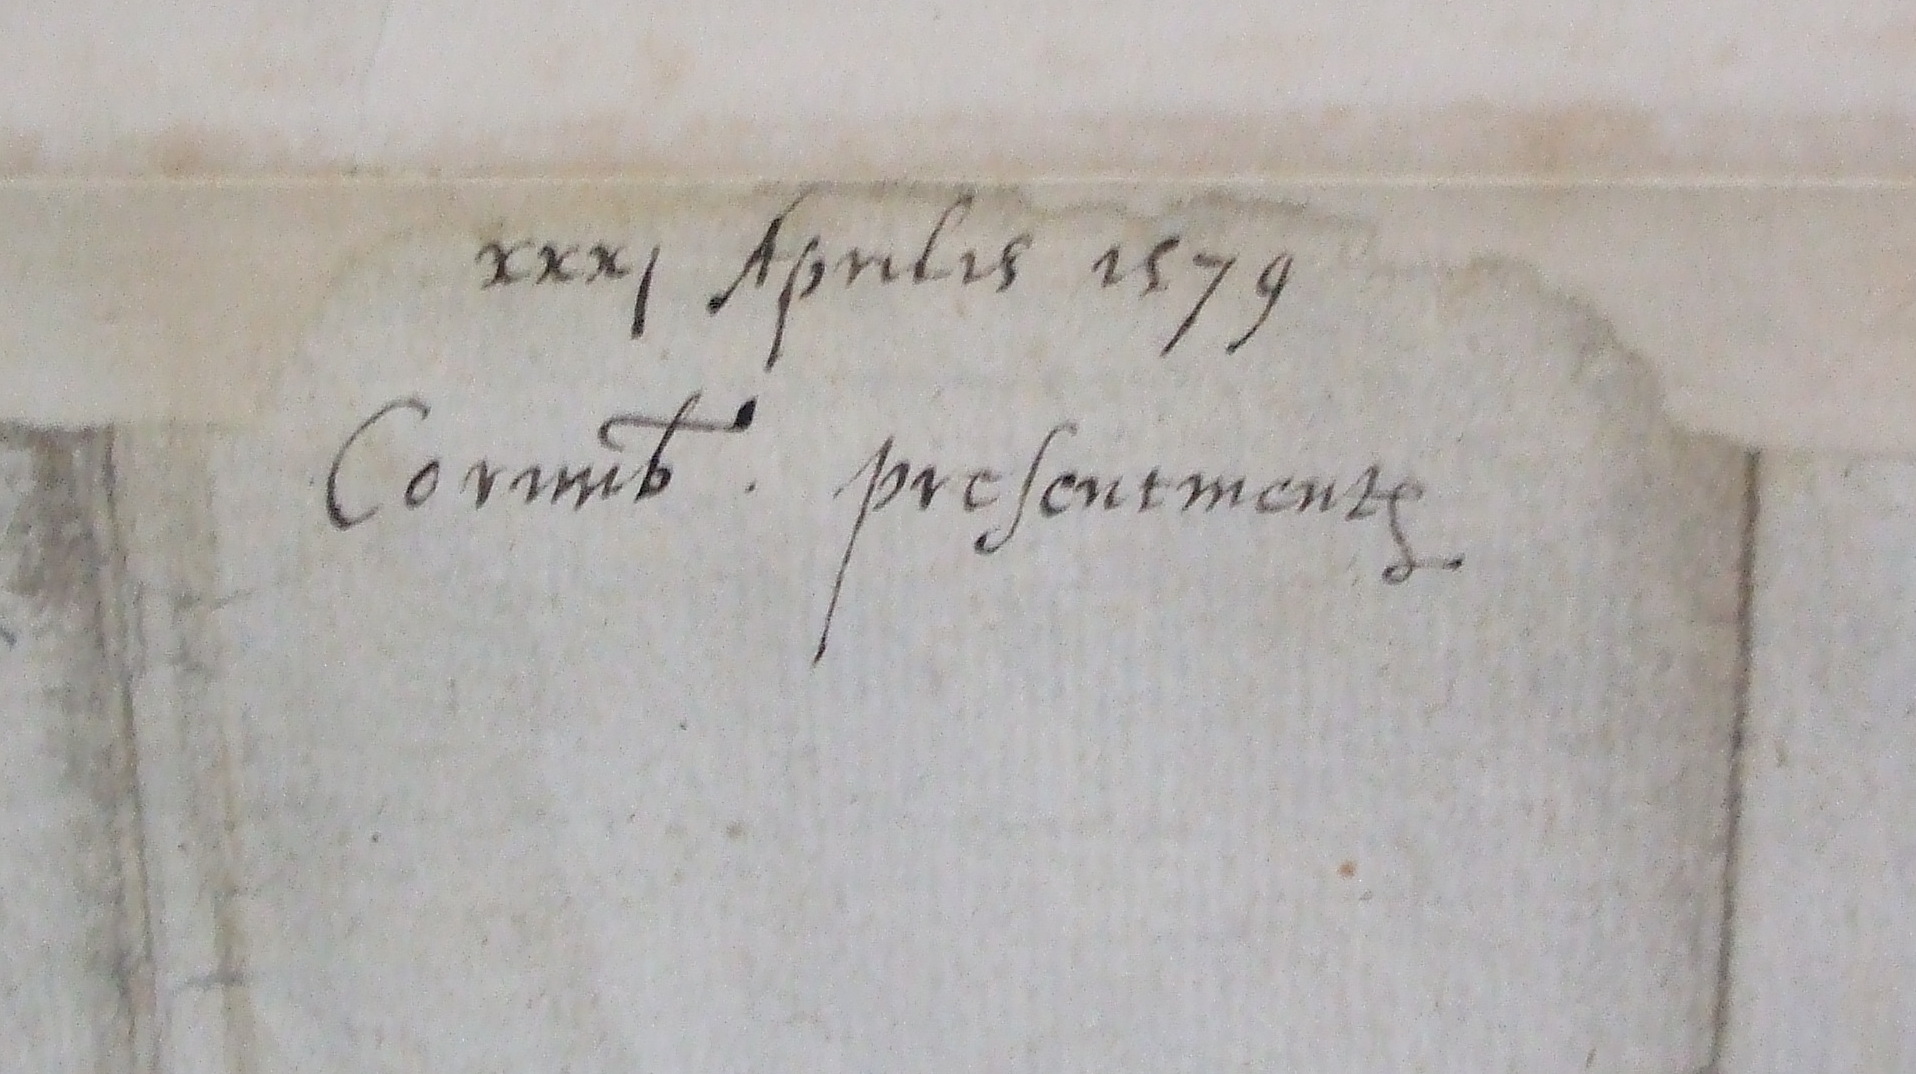 xxxj Aprilis 1579
Cornub. presentmentes